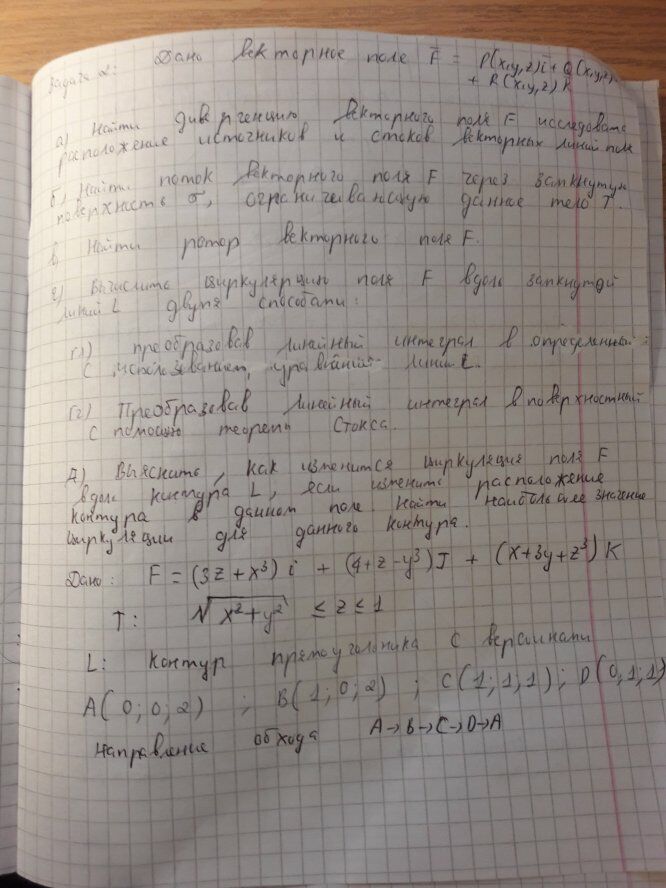 Задача 2: Дано векторное поле F̄ = P(x,y,z)i + Q(x,y,z)
+ R(x,y,z)k
а) Найти дивергенцию векторного поля F исследовать
расположение источников и стоков векторных линий поля
б, Найти поток векторного поля F через замкнутую
поверхность σ, ограничивающую данное тело T.
в, Найти ротор векторного поля F.
г) Вычислить циркуляцию поля F вдоль замкнутой
линии L двумя способами:
г1) преобразовав линейный интеграл в определенный
с использованием уравнений линии L.
г2) Преобразовав линейный интеграл в поверхностный
с помощью теоремы Стокса.
Д) Выяснить, как изменится циркуляция поля F
вдоль контура L, если изменить расположение
контура в данном поле. Найти наибольшее значение
циркуляции для данного контура.
Дано: F = (3z + x³) i + (4+z-y³)J + (x+3y+z³) K
T: √x²+y² ≤ z ≤ 1
L: контур прямоугольника с вершинами
A(0;0;2) ; B(1;0;2) ; C(1;1;1) ; D(0,1;1)
направление обхода A→B→C→D→A